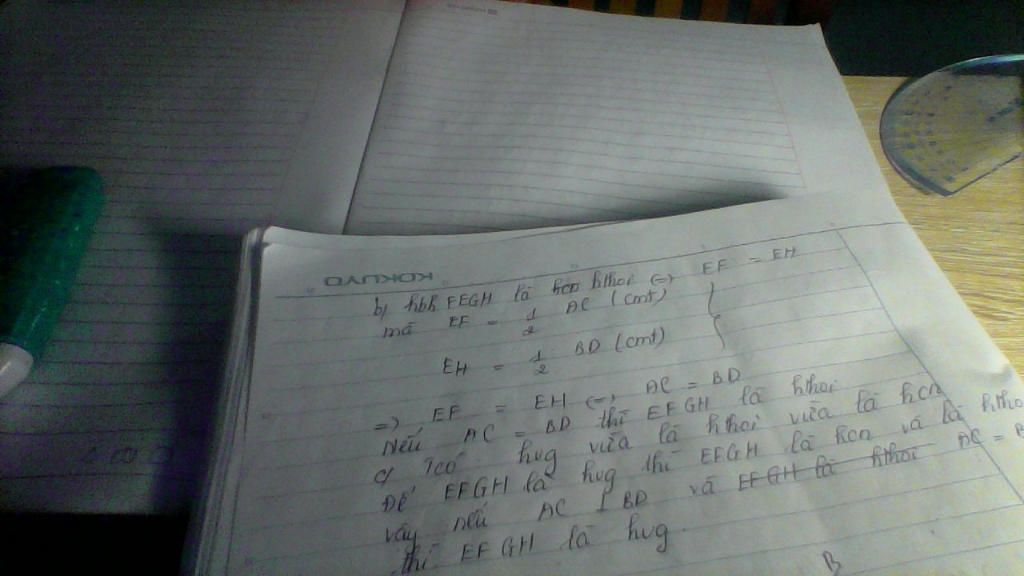 KOKUYO
b) hbh FEGH là hcn hthoi (=) EF = EH
mà EF = 1/2 AC (cmt)
EH = 1/2 BD (cmt)
=) EF = EH (=) AC = BD
Nếu AC = BD thì EFGH là hthoi
c) Tcó hvg vừa là hthoi vừa là hcn
Để EFGH là hvg thì EFGH là hcn và là htho
vậy nếu AC ⊥ BD và EFGH là hthoi AC = B
thì EFGH là hvg
B